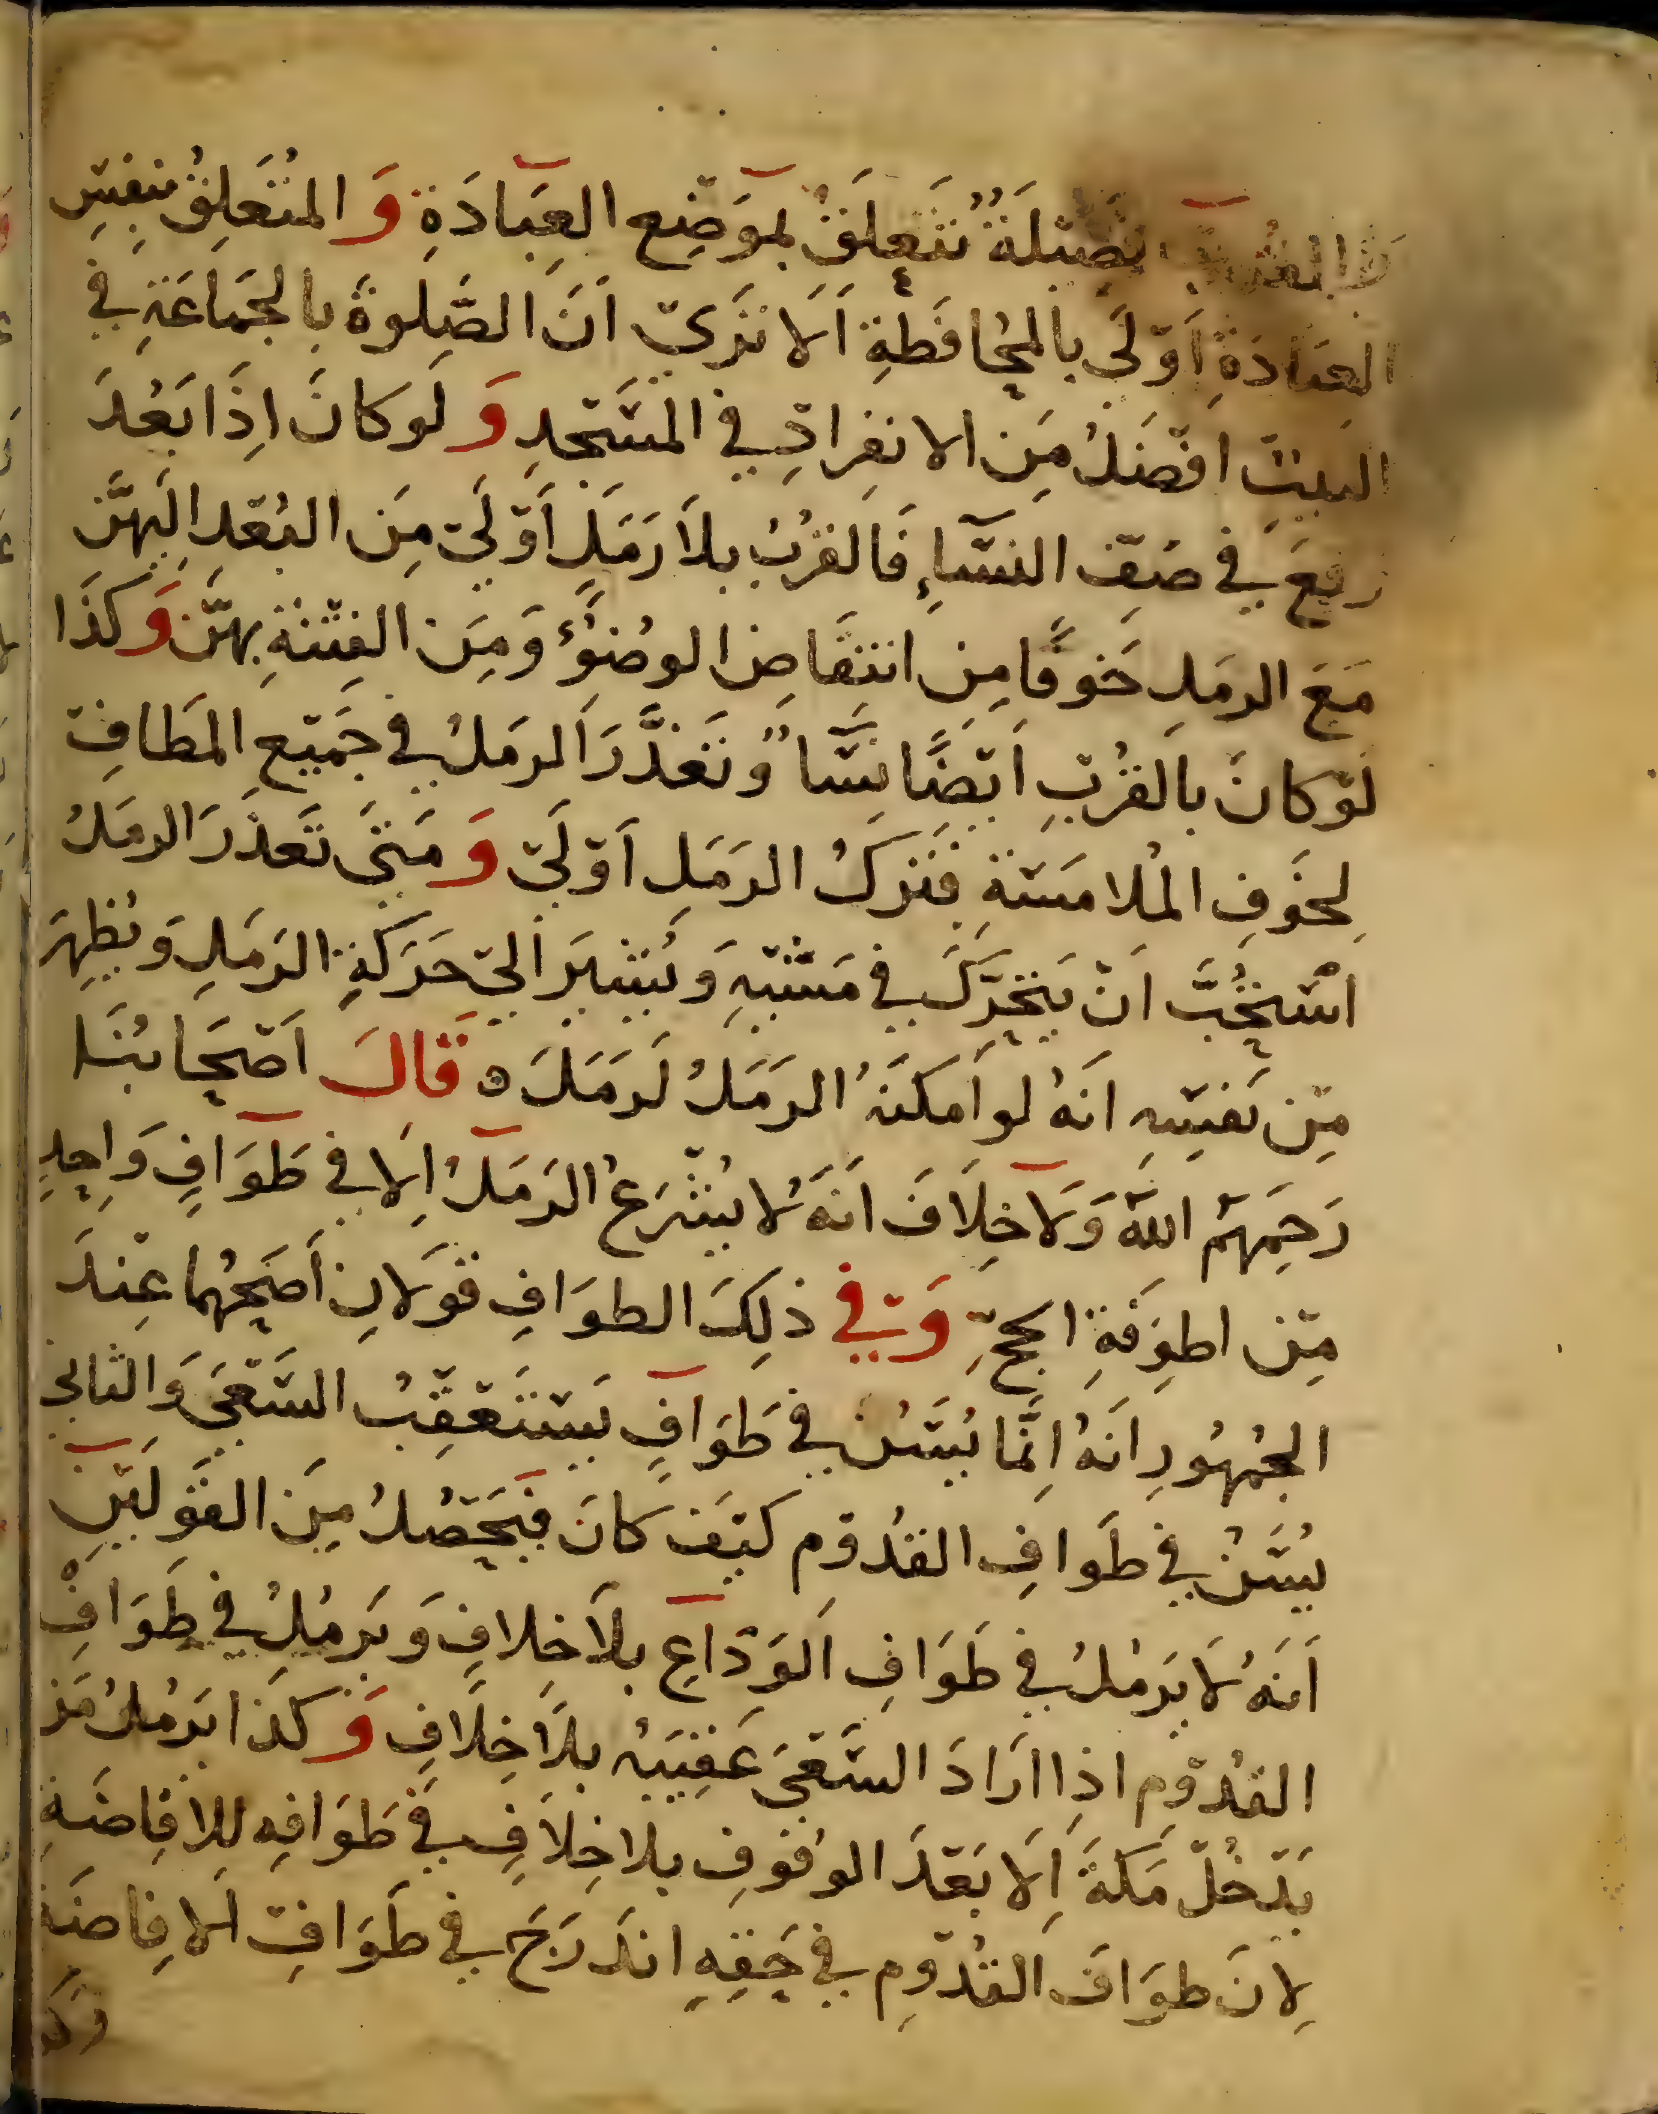 فضيلة تتعلق بموضع العبادة و المتعلق بنفس
العبادة اولى بالمحافظة الا ترى ان الصلوة بالجماعة في
البيت افضل من الانفراد في المسجد و لو كان اذا بعد
وقع في صف النساء فالقرب بلا رمل اولى من البعد اليهن
مع الرمل خوفا من انتقاض الوضوء ومن الفتنة بهن وكذا
لو كان بالقرب ايضا نسا وتعذر الرمل في جميع المطاف
لخوف الملامسة فترك الرمل اولى و متى تعذر الرمل
استحب ان يتحرك في مشيه ويشير الى حركة الرمل ويظهر
من نفسه انه لو امكنه الرمل لرمل ه قال اصحابنا
رحمهم الله ولا خلاف انه لا يشرع الرمل الا في طواف واحد
من اطوفة الحج وفي ذلك الطواف قولان اصحهما عند
الجمهور انه انما يسن في طواف يستعقب السعى والثاني
يسن في طواف القدوم كيف كان فيحصل من القولين
انه لا يرمل في طواف الوداع بلا خلاف ويرمل في طواف
القدوم اذا اراد السعى عقيبه بلا خلاف و كذا يرمل من
يدخل مكة الا بعد الوقوف بلا خلاف في طوافه للافاضة
لان طواف القدوم في حقه اندرج في طواف الافاضة
ولو